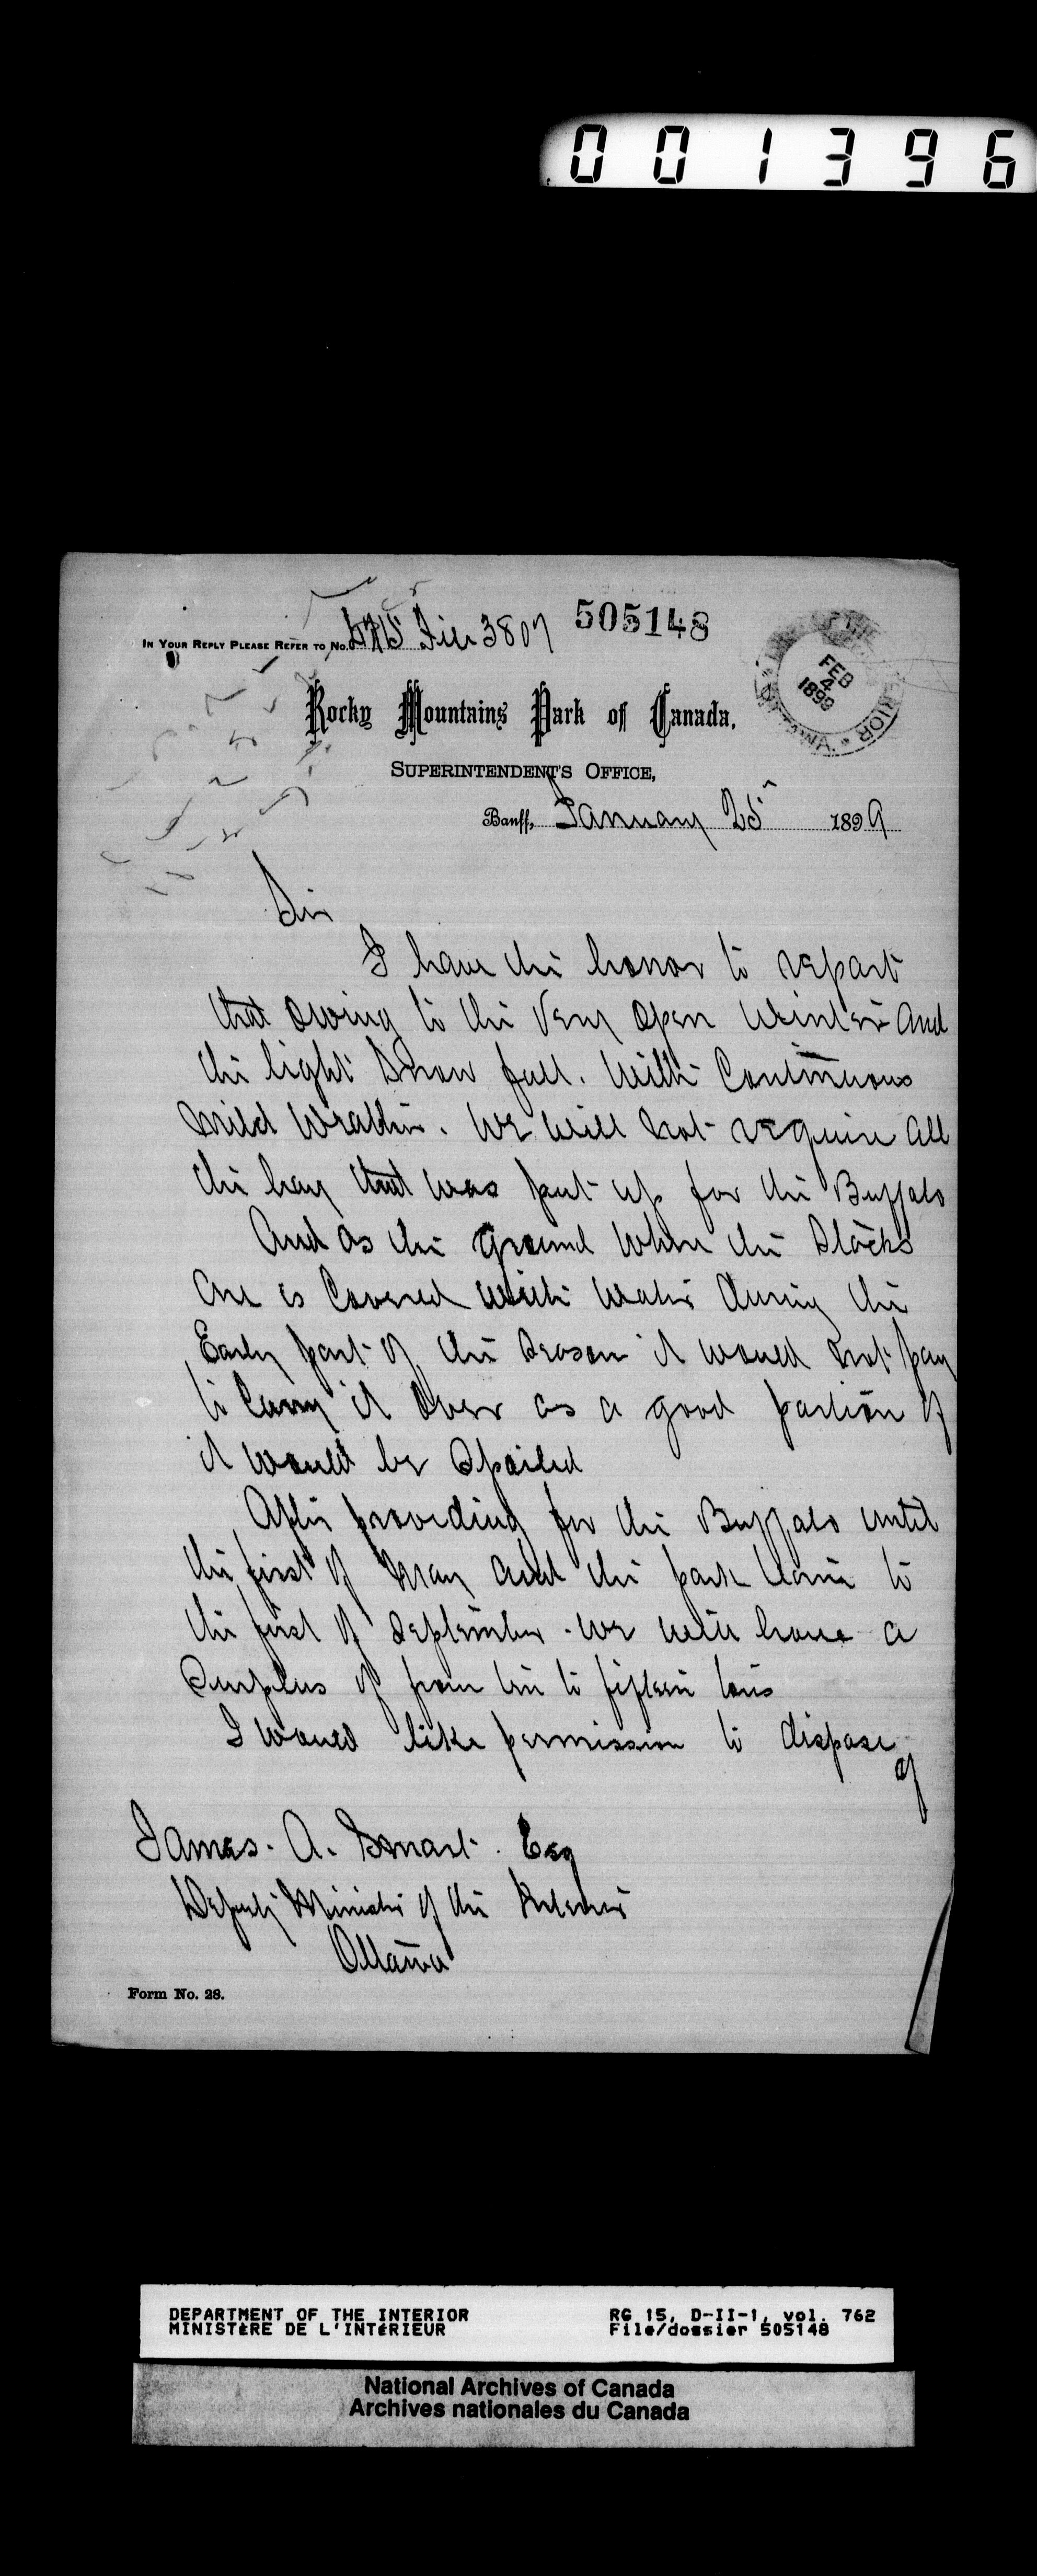 001396
505148
IN YOUR REPLY PLEASE REFER TO No. File 3807
FEB
4
1899
Rocky Mountains Park of Canada,
SUPERINTENDENT'S OFFICE,
Banff, January 25 1899
Sir
I have the honor to report
that owing to the very open Winter and
the light Snow fall. With Continuous
mild Weather. We will not require all
the hay that was put up for the Buffalo
And as the ground where the Stacks
are is Covered with Water during the
Early part of the Season it would not pay
to Carry it over as a good portion of
it would be Spoiled
After providing for the Buffalo until
the first of May and the park team to
the first of September. we will have a
Surplus of from ten to fifteen tons
I would like permission to dispose
of
James. A. Smart. Esq
Deputy Minister of the Interior
Ottawa
Form No. 28.
DEPARTMENT OF THE INTERIOR
MINISTÈRE DE L'INTÉRIEUR
RG 15, D-II-1, vol. 762
File/dossier 505148
National Archives of Canada
Archives nationales du Canada